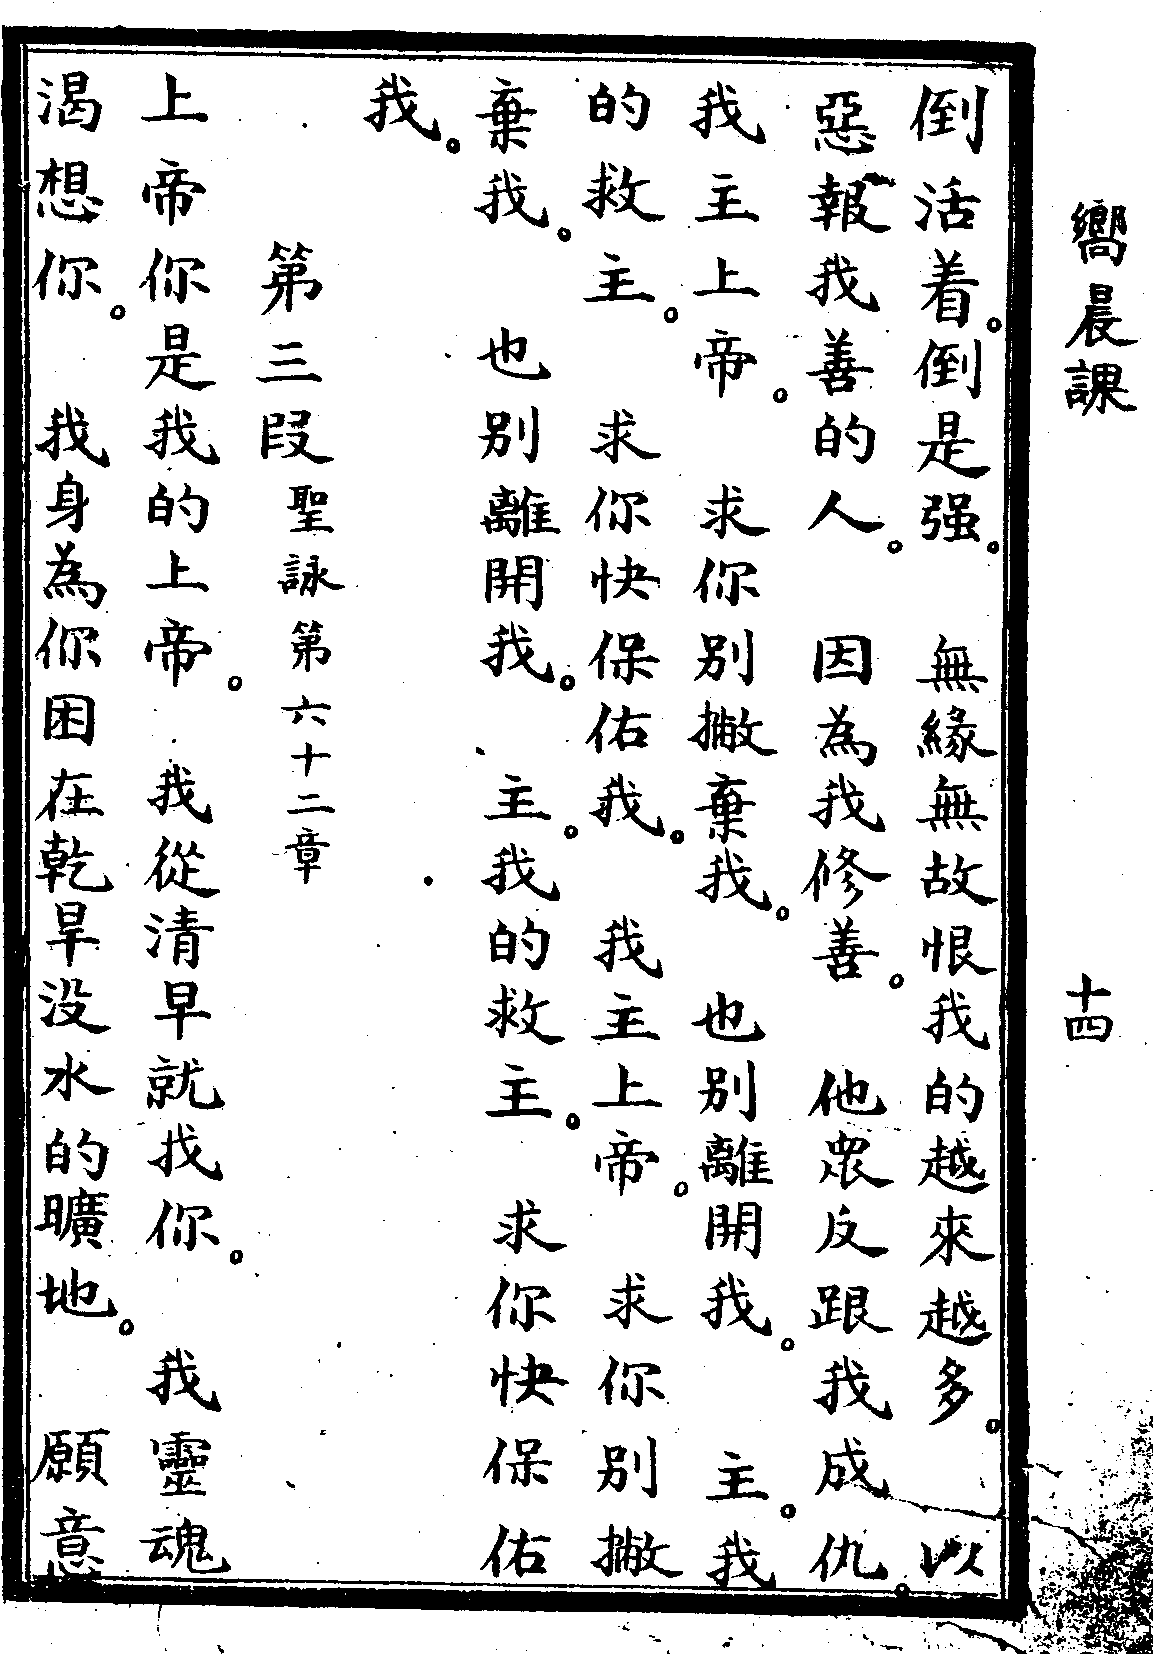 嚮晨課
十四
倒活着。倒是强。無緣無故恨我的越來越多。以
惡報我善的人。因為我修善。他衆反跟我成仇。
我主上帝。求你别撇棄我。也别離開我。主。我
的救主。求你快保佑我。我主上帝。求你别撇
棄我。也别離開我。主。我的救主。求你快保佑
我。
第三段聖詠第六十二章
上帝你是我的上帝。我從清早就找你。我靈魂
渴想你。我身為你困在乾旱没水的曠地。願意